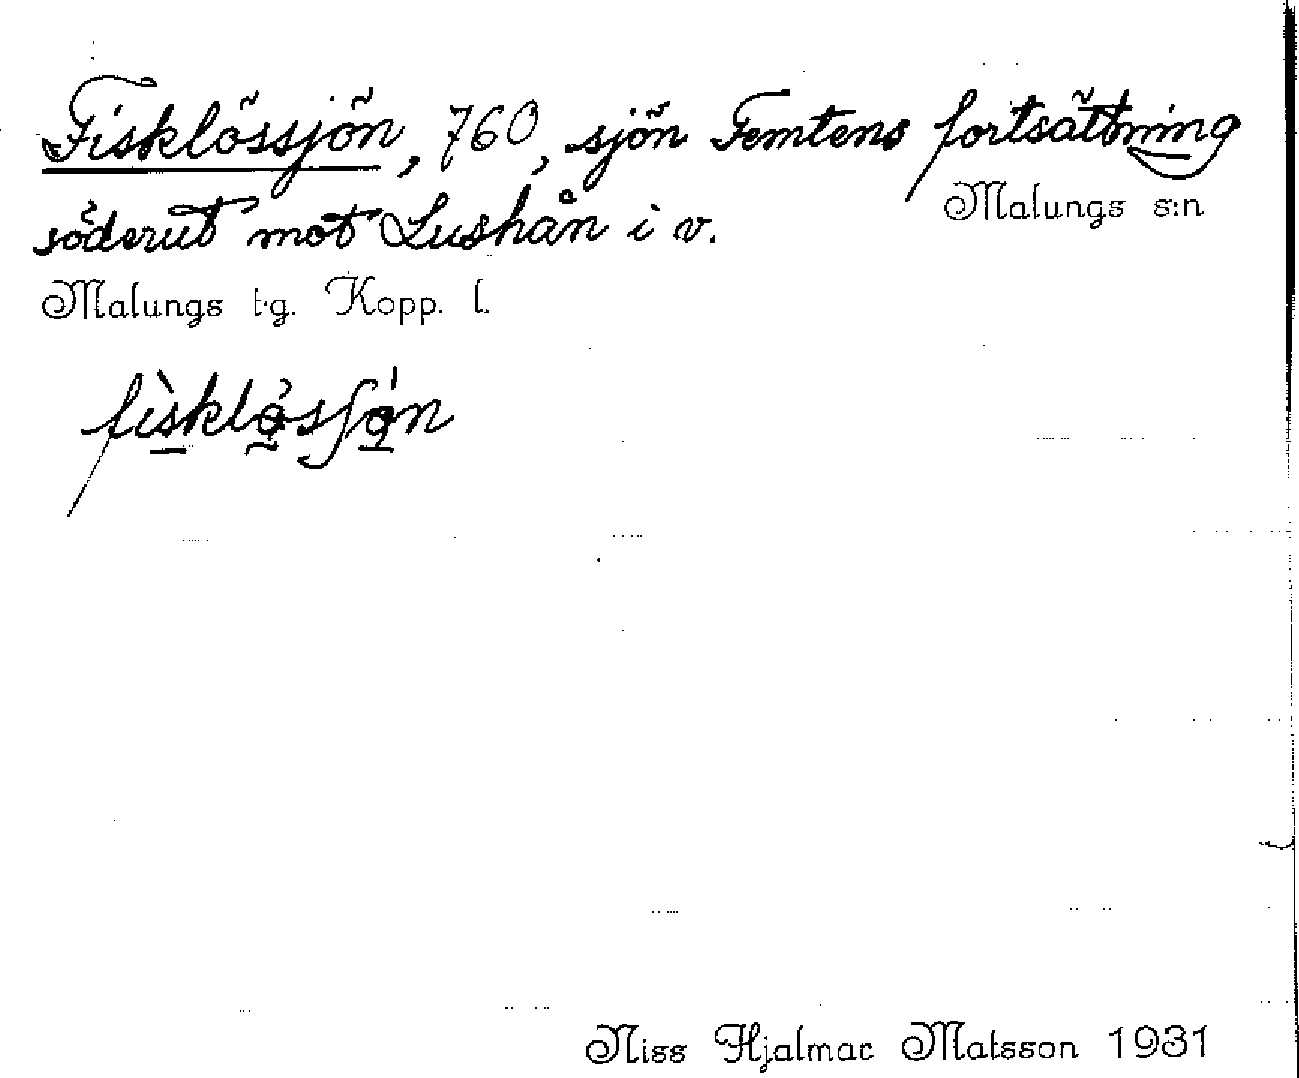 Fisklössjön, 760, sjön Femtens fortsättning
Malungs s:n
söderut mot Lushån i v.
Malungs t.g. Kopp. l.
Niss Hjalmar Matsson 1931